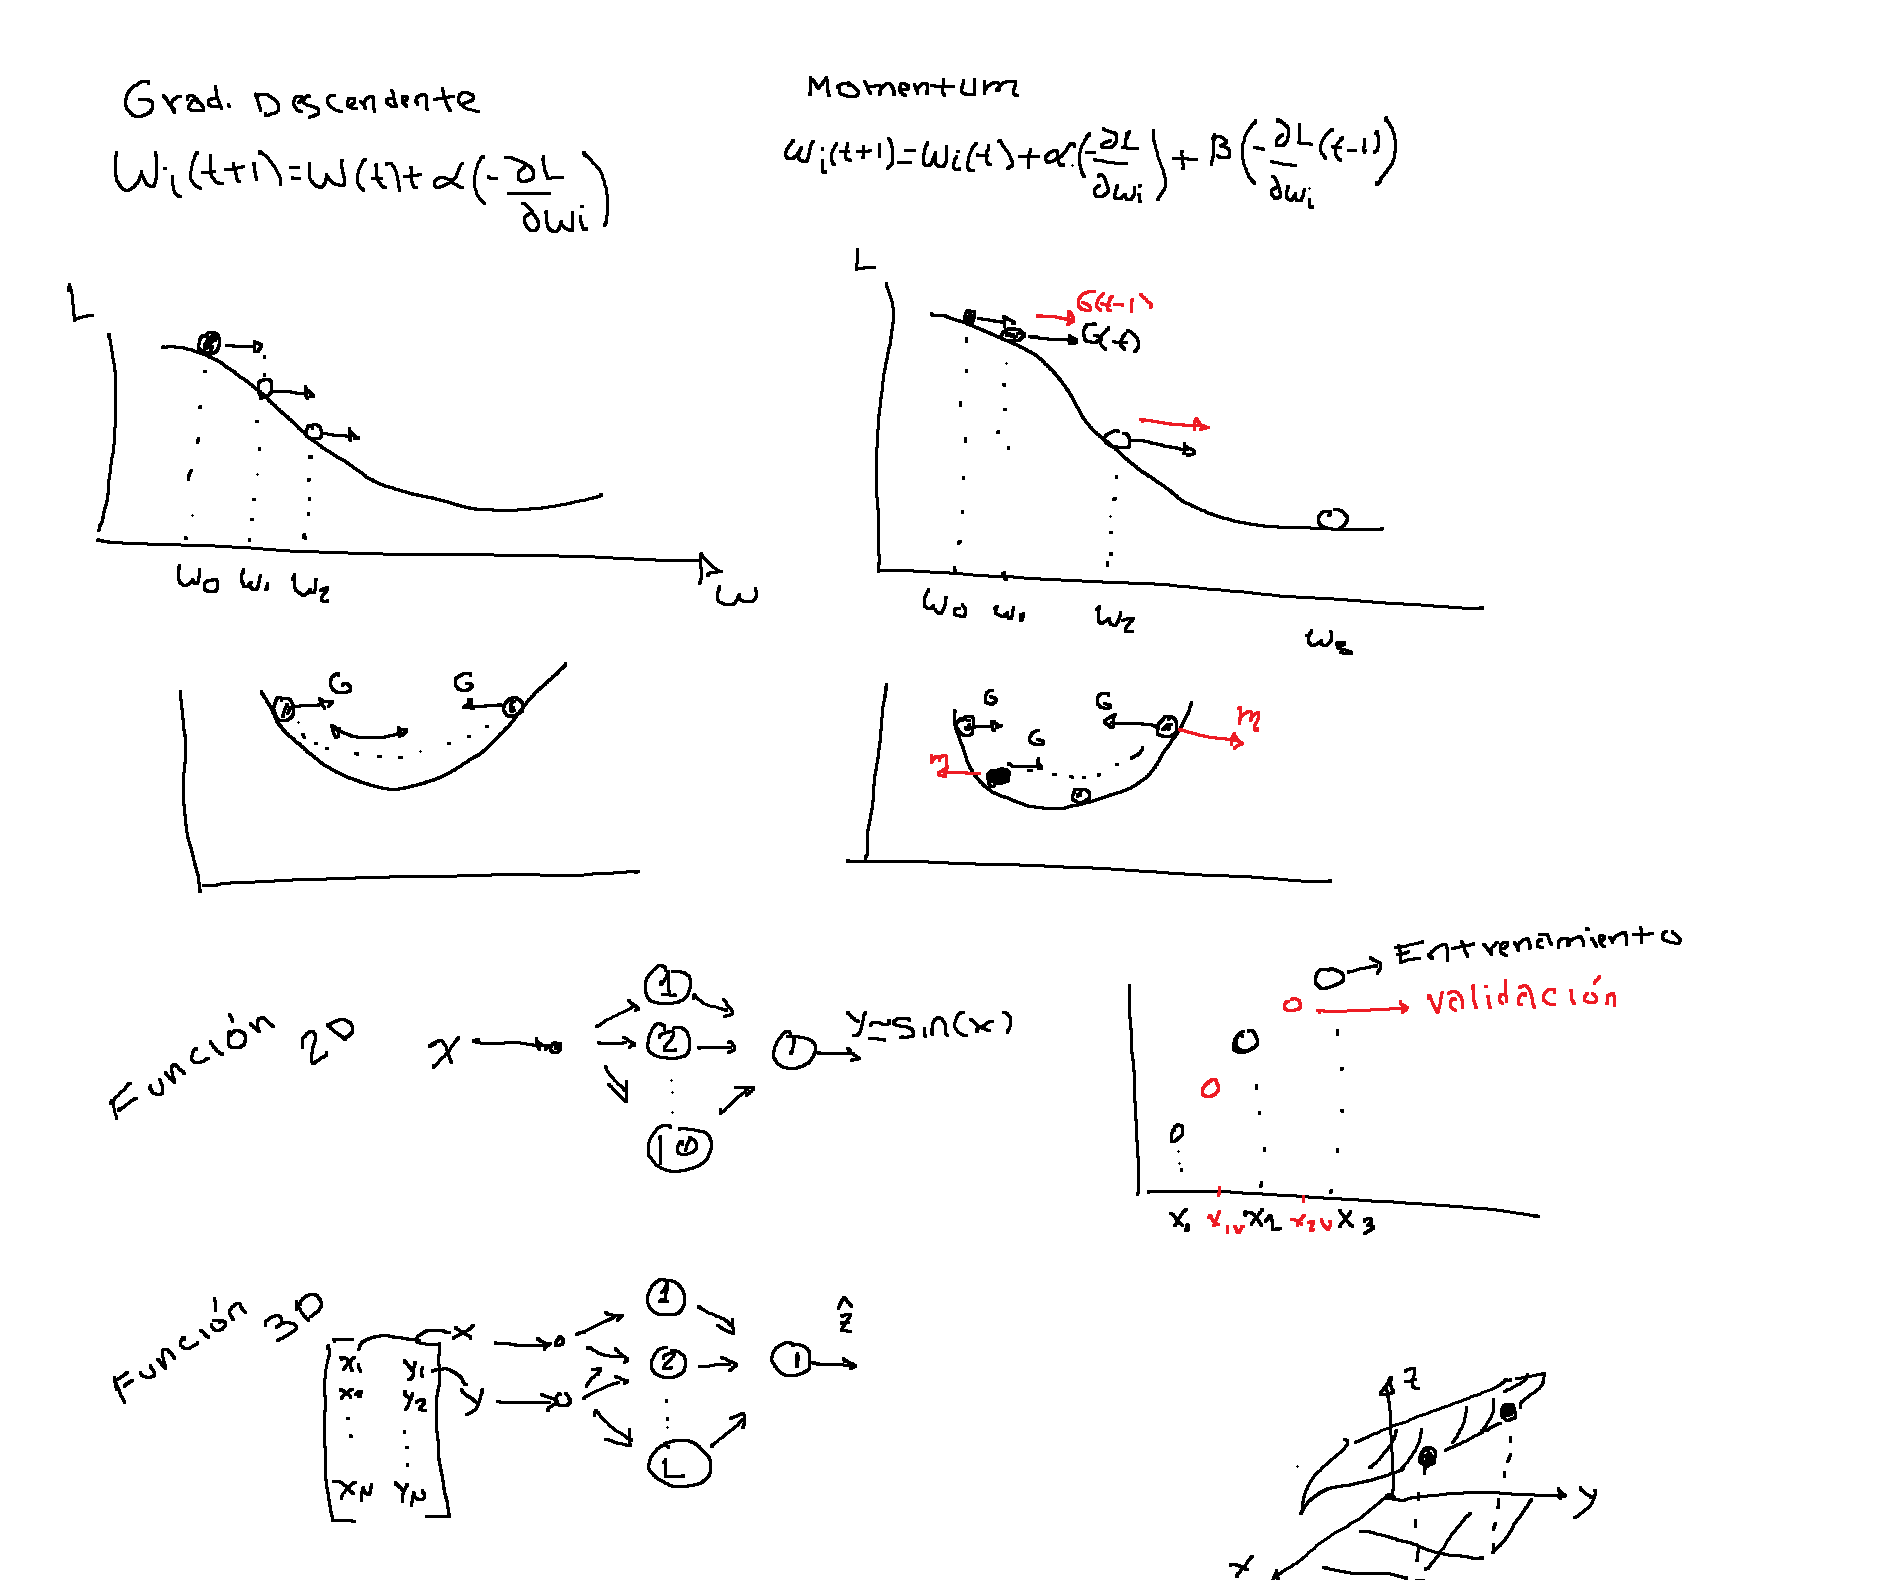 Grad. Descendente
Wi(t+1)=W(t)+α(-∂L/∂wi)
Momentum
wi(t+1)=wi(t)+α(-∂L/∂wi)+B(-∂L/∂wi(t-1))
L
w0 w1 w2
w
L
G(t-1)
G(t)
w0 w1 w2
G G
G G m
m G
Función 2D
x
1
2
10
1
y≃sin(x)
Entrenamiento
validación
x1 x1v x2 x2v x3
Función 3D
x1 y1
y2
xN yN
x
y
1
2
L
1
ẑ
z
y
x